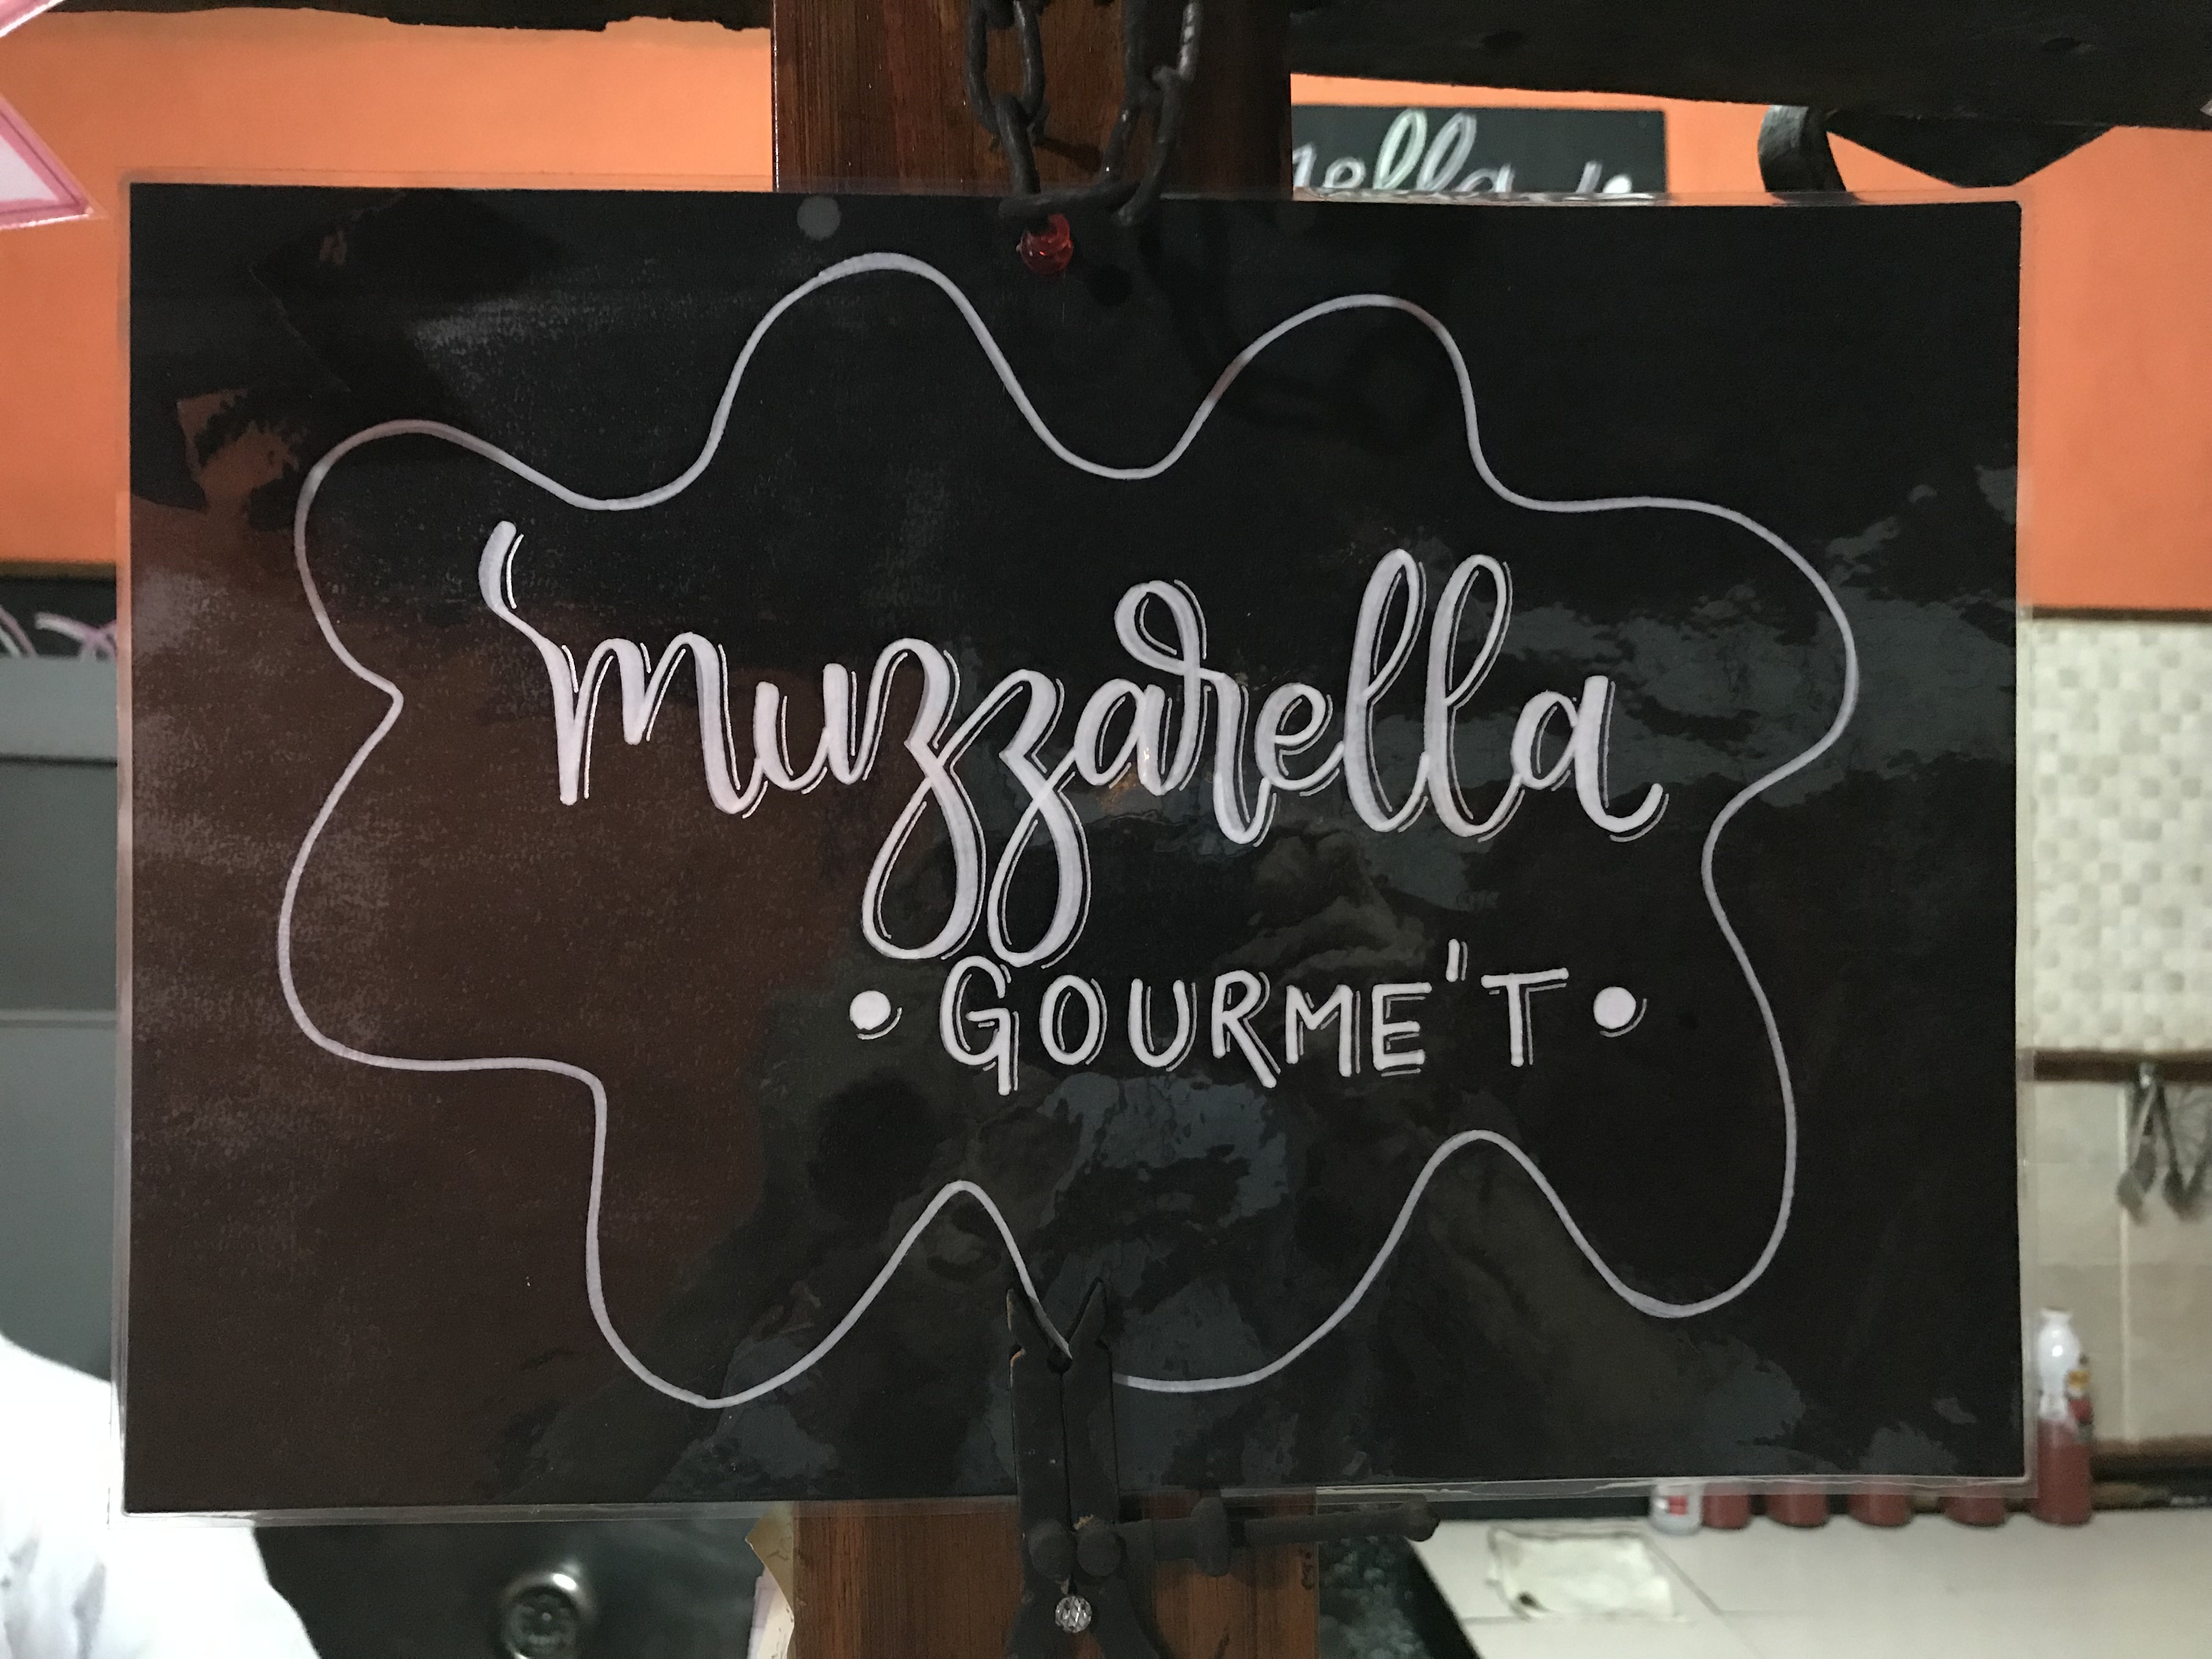 muzzarella
• GOURME'T •